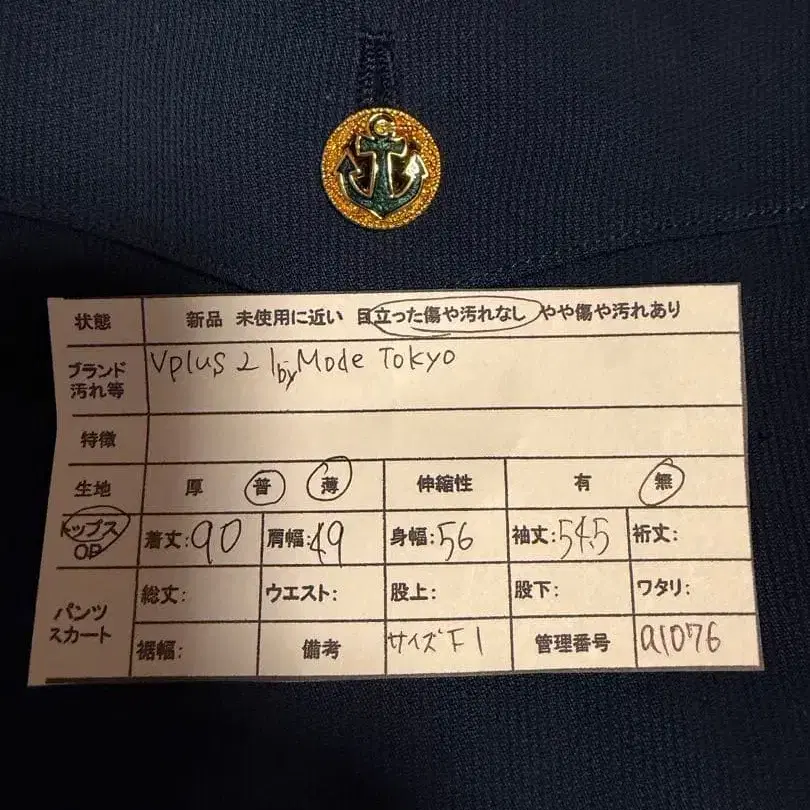 状態 新品 未使用に近い 目立った傷や汚れなし やや傷や汚れあり
ブランド Vplus 21 by Mode Tokyo
汚れ等
特徴
生地 厚 普 薄 伸縮性 有 無
トップス 着丈:90 肩幅:49 身幅:56 袖丈:54.5 裄丈:
OP
パンツ 総丈: ウエスト: 股上: 股下: ワタリ:
スカート
裾幅: 備考 サイズF1 管理番号 a1076